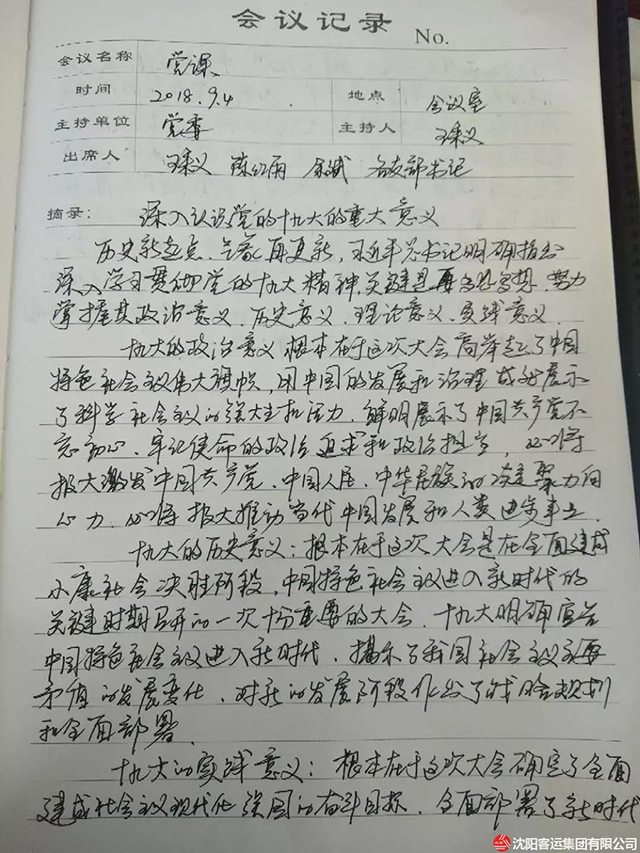 会议记录
No.
会议名称 党课
时间 2018.9.4 地点 会议室
主持单位 党委 主持人 王秉义
出席人 王秉义 陈红雨 余斌 各支部书记
摘录： 深入认识党的十九大的重大意义
历史新起点 万象再更新，习近平总书记明确指出
深入学习贯彻党的十九大精神，关键是要多思多想，努力
掌握其政治意义、历史意义、理论意义、实践意义
十九大的政治意义 根本在于这次大会高举起了中国
特色社会主义伟大旗帜，用中国的发展和治理成就展示
了科学社会主义的强大生机活力，鲜明展示了中国共产党不
忘初心、牢记使命的政治追求和政治担当，必将
极大激发中国共产党、中国人民、中华民族的凝聚力向
心力，必将极大推动当代中国发展和人类进步事业
十九大的历史意义：根本在于这次大会是在全面建成
小康社会决胜阶段，中国特色社会主义进入新时代的
关键时期召开的一次十分重要的大会，十九大明确宣告
中国特色社会主义进入新时代，揭示了我国社会主要
矛盾的发展变化，对新的发展阶段作出了战略规划
和全面部署
十九大的实践意义：根本在于这次大会确定了全面
建成社会主义现代化强国的奋斗目标，全面部署了新时代
沈阳客运集团有限公司